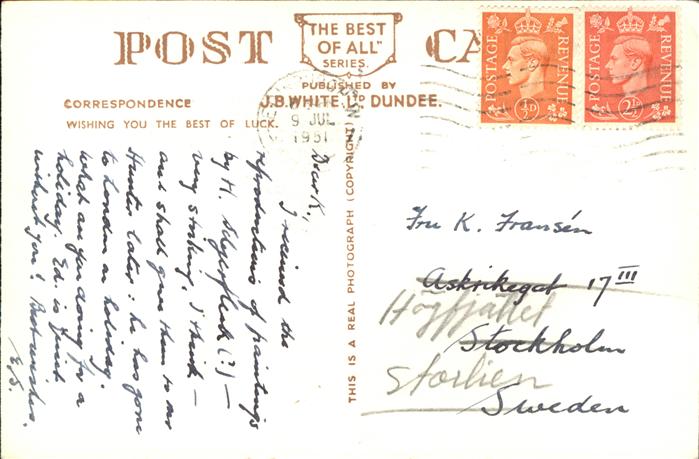 POST CA
"THE BEST
OF ALL"
SERIES.
PUBLISHED BY
J.B.WHITE LTD DUNDEE.
CORRESPONDENCE
WISHING YOU THE BEST OF LUCK.
9 JUL
1951
POSTAGE REVENUE
½D
POSTAGE REVENUE
2½D
THIS IS A REAL PHOTOGRAPH (COPYRIGHT)
Dear K.,
I received the
reproductions of paintings
by H. (?) —
very striking, I think —
and shall give them to
Hunter later: he has gone
to London on holiday.
What are you doing for a
holiday. Ed. is
without you! Best wishes.
Fru K. Fransén
Askrikegat 17 III
Högfjället
Stockholm
Storlien
Sweden